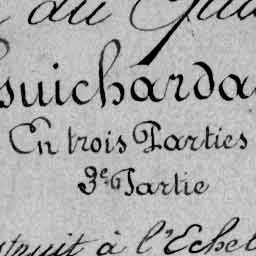 du
Guicharda
En trois Parties
3e Partie
struit à l'Echel